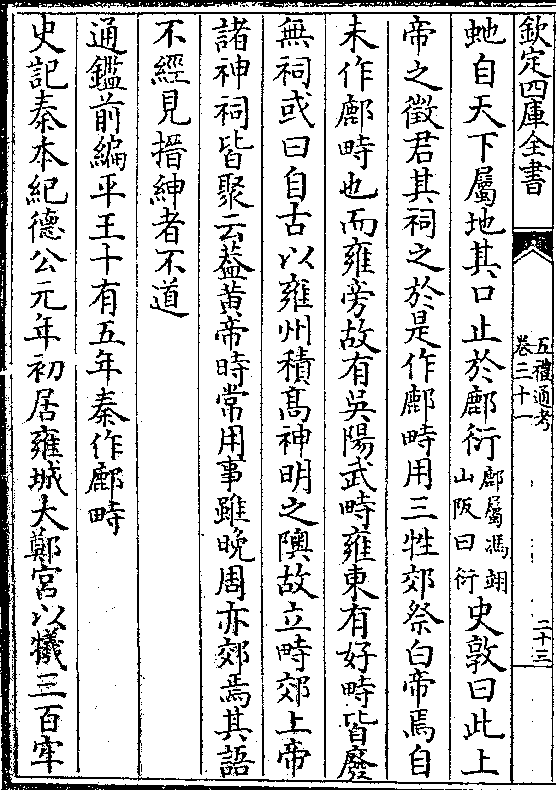 欽定四庫全書
五禮通考
卷三十一
二十三
虵自天下屬地其口止於鄜衍鄜屬馮翊山阪曰衍史敦曰此上
帝之徵君其祠之於是作鄜畤用三牲郊祭白帝焉自
未作鄜畤也而雍旁故有吳陽武畤雍東有好畤皆廢
無祠或曰自古以雍州積髙神明之隩故立畤郊上帝
諸神祠皆聚云葢黄帝時常用事雖晚周亦郊焉其語
不經見搢紳者不道
通鑑前編平王十有五年秦作鄜畤
史記秦本紀德公元年初居雍城大鄭宮以犧三百牢